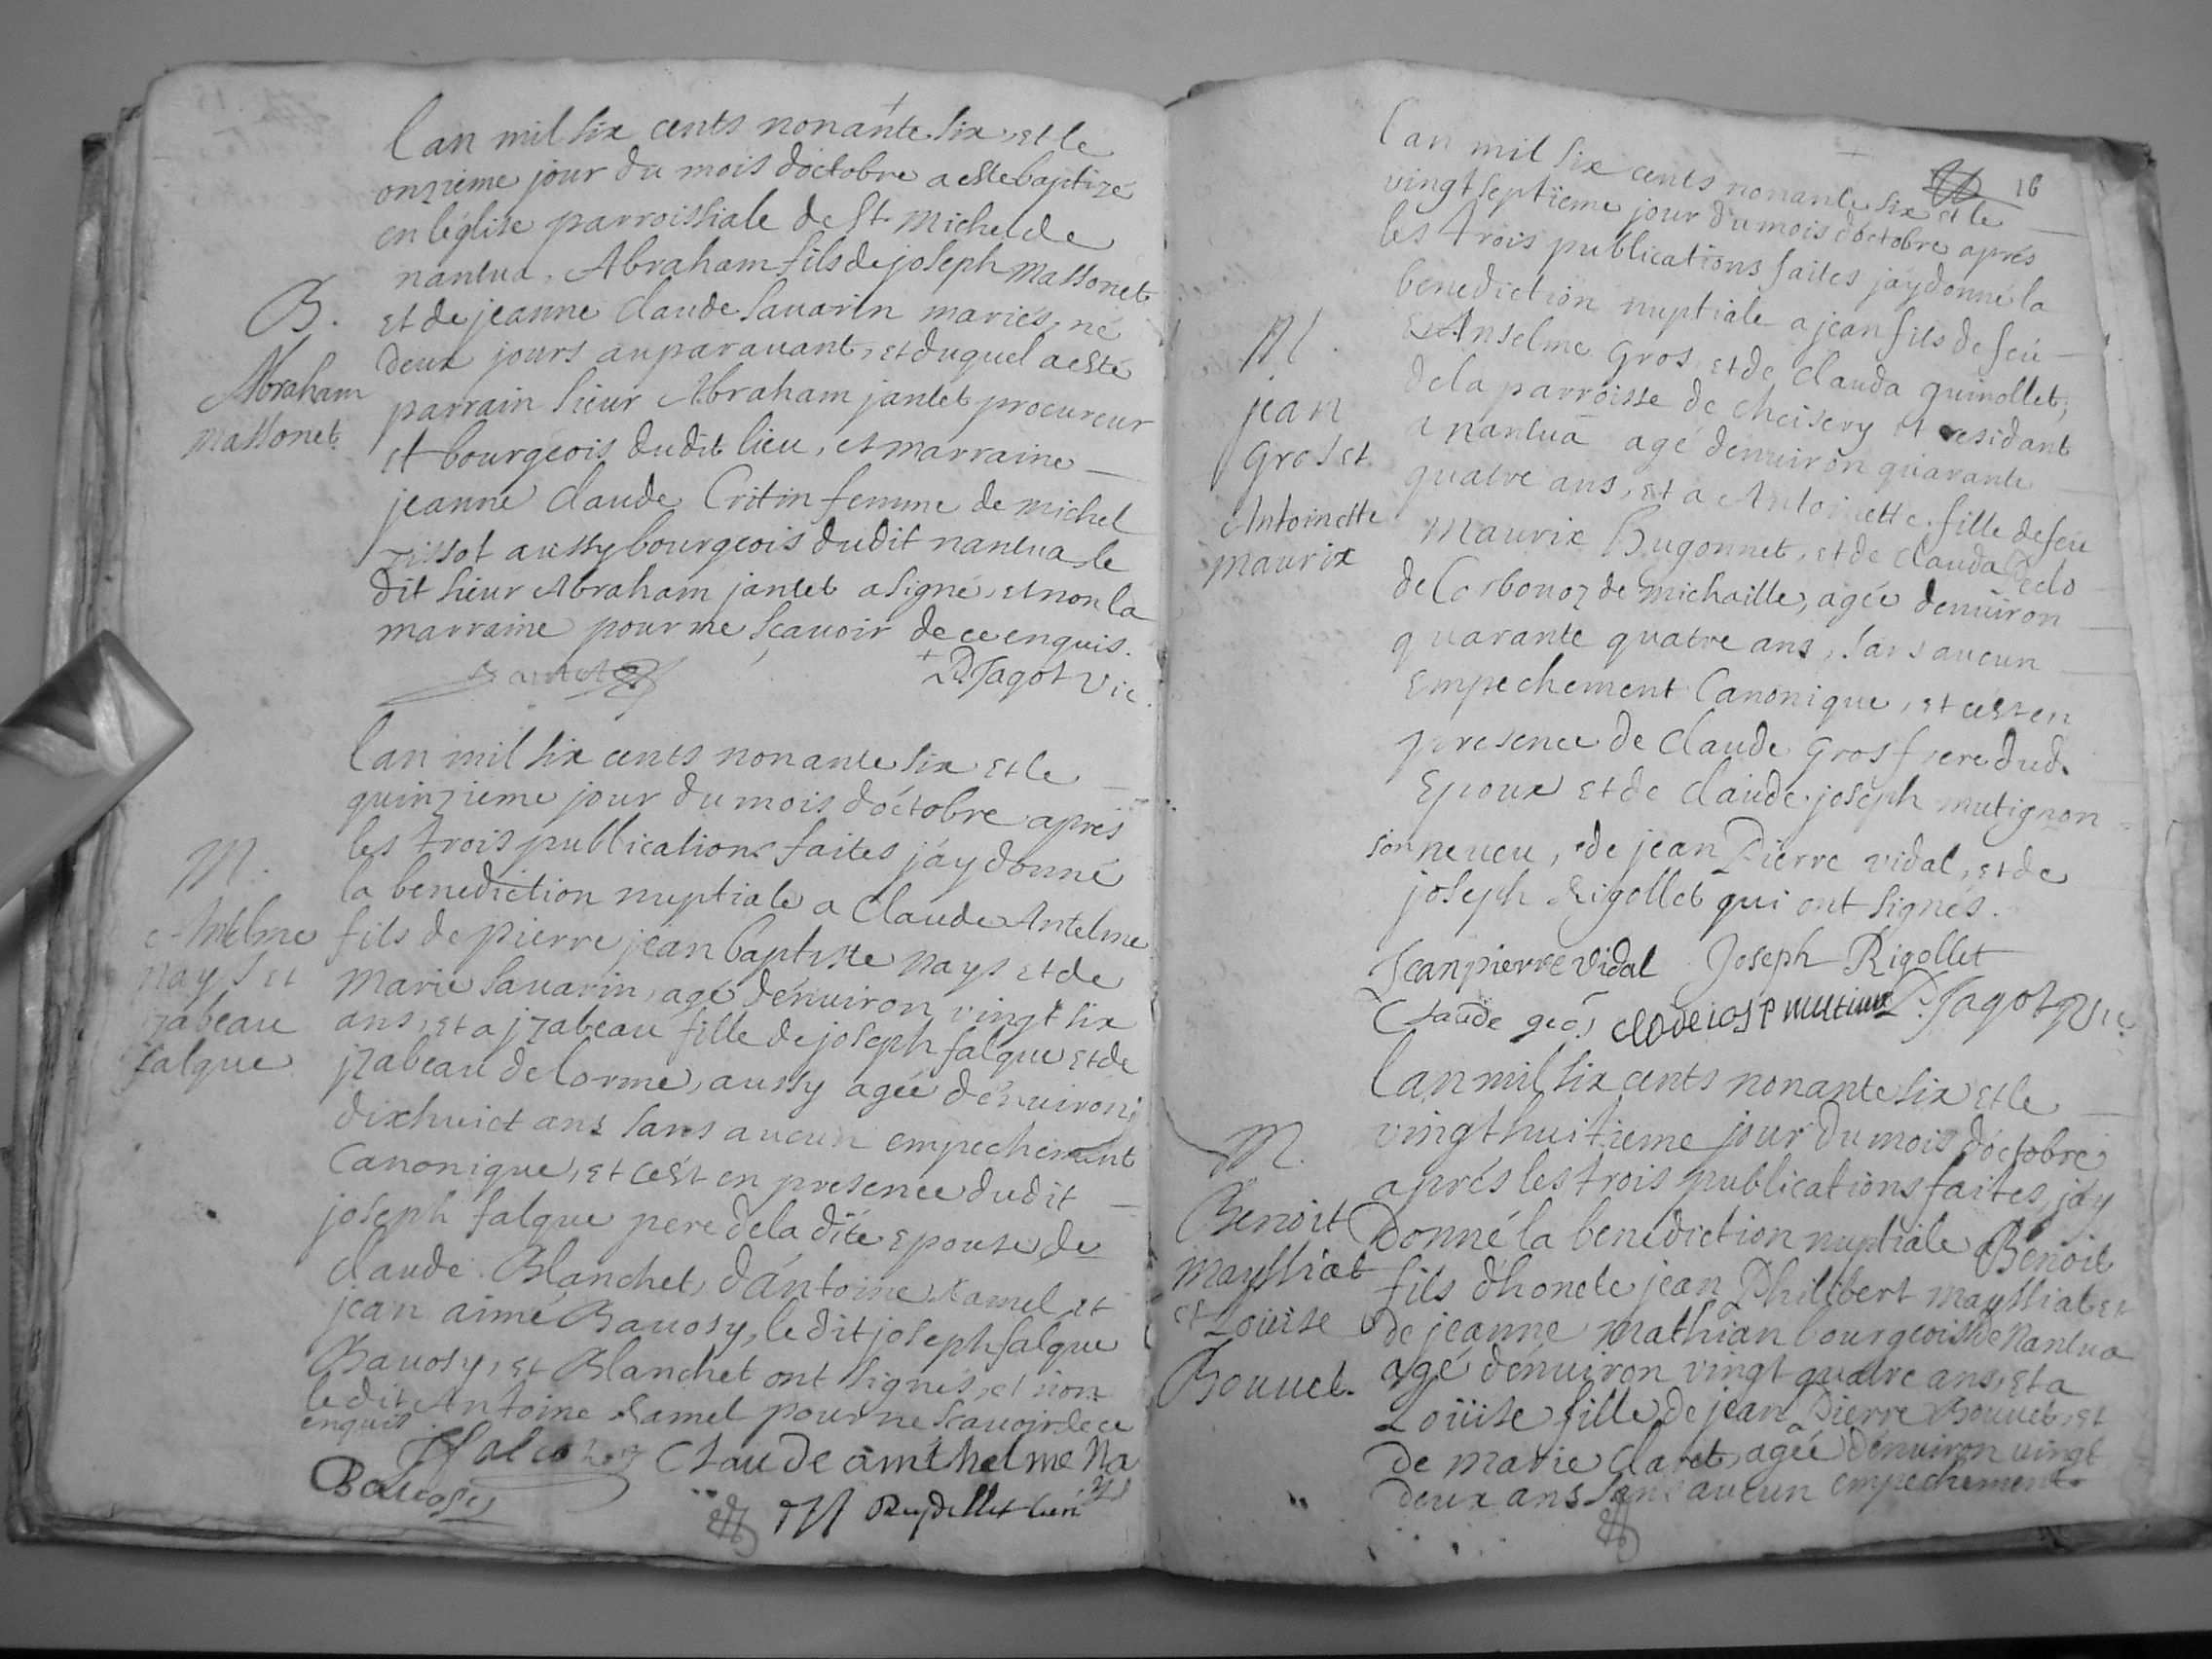 l'an mil six cents nonante six, et le
onzieme jour du mois d'octobre a esté baptizé
en l'église parroissiale de St Michel de
nantua, Abraham fils de joseph Massonet
et de jeanne Claude Savarin mariés, né
deux jours auparavant, et duquel a esté
parrain sieur Abraham jantet procureur
et bourgeois dudit lieu, et marraine
jeanne Claude Critin femme de michel
Tissot aussy bourgeois dudit nantua le
dit sieur Abraham jantet a signé, et non la
marraine pour ne sçavoir de ce enquis.
Jantet
P. Jagot vic.
B.
Abraham
Massonet
l'an mil six cents nonante six et le
quinzieme jour du mois d'octobre aprés
les trois publications faites j'ay donné
la benediction nuptiale a Claude Antelme
fils de pierre jean baptiste nays et de
Marie Savarin, agé d'environ vingt six
ans, et a jzabeau fille de joseph falque et de
jzabeau delorme, aussy agée d'environ
dixhuict ans sans aucun empechement
Canonique, et c'est en presence dudit
joseph falque pere de la dite epouse, de
Claude Blanchet, d'Antoine Ramel et
jean aimé Bavosy, le dit joseph falque
Bavosy, et Blanchet ont signés, et non
le dit Antoine Ramel pour ne sçavoir de ce
enquis
Claude amthelme Na
ys
Bavosy
M.
Antelme
nays et
jzabeau
falque
16
l'an mil six cents nonante six et le
vingt septieme jour du mois d'octobre aprés
les trois publications faites j'ay donné la
benediction nuptiale a jean fils de feu
Anselme Gros, et de Clauda guinollet,
de la parroisse de Cheisery et residant
a nantua agé d'environ quarante
quatre ans, et a Antoinette fille de feu
Maurix Hugonnet, et de Clauda
de Corbonoz de michaille, agée d'environ
quarante quatre ans, sans aucun
Empechement Canonique, et c'est en
presence de Claude Gros frere dud.
Epoux et de Claude joseph mutignon
son neveu, de jean Pierre vidal, et de
joseph Rigollet qui ont signés.
Jean pierre vidal Joseph Rigollet
Claude gros P. Jagot Vic.
M.
jean
Gros et
Antoinette
maurix
l'an mil six cents nonante six et le
vingt huitieme jour du mois d'octobre
aprés les trois publications faites, j'ay
Donné la benediction nuptiale a Benoit
fils d'honete jean Philibert mayssiat et
de jeanne Mathian bourgeois de Nantua
agé d'environ vingt quatre ans, et a
Loüise fille de jean Pierre Bouvet, et
de Marie Claret agée d'environ vingt
deux ans sans aucun empechement
M.
Benoit
Mayssiat
et Loüise
Bouvet.